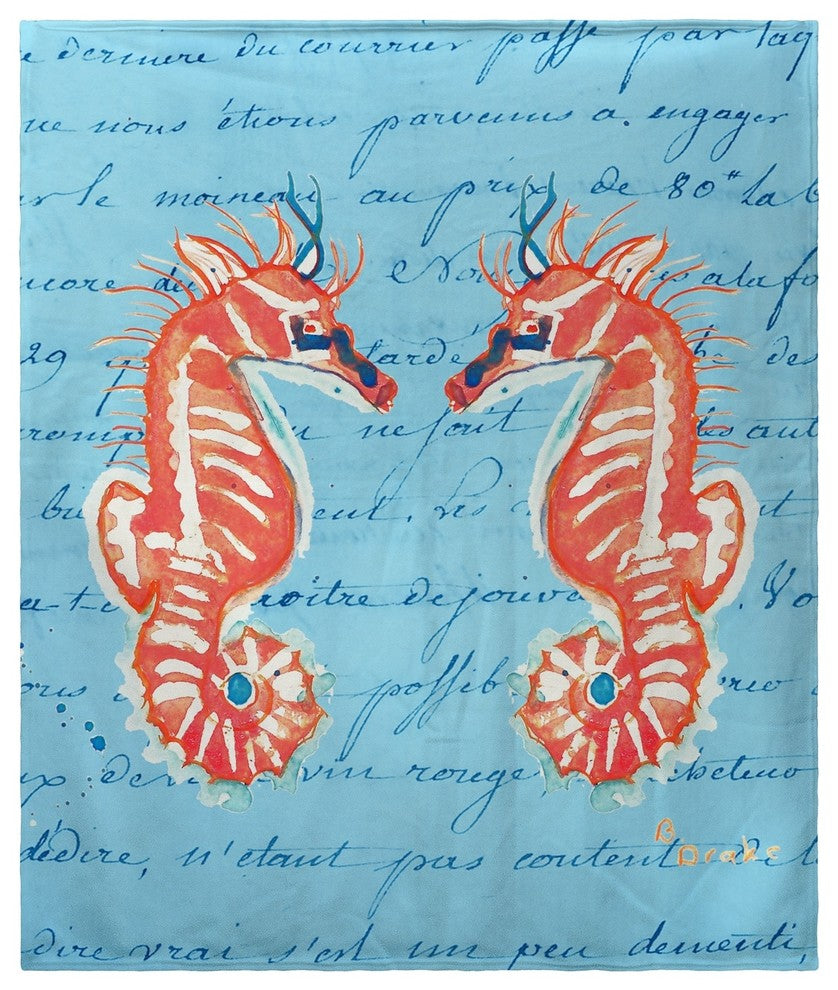 e derniere du courrier passe par laq
ue nous étions parvenus a engager
ar le moineau au prix de 80# La b
ncore de Nou es a la fo
29 p tardé de
romp du ne soit les aut
bi ent. Les t
a-t- roitre de jouvo . Vo
ous possib
x de vin rouge, cheteuo
dédire, n'etant pas content de l
B Drake
dire vrai s'est un peu dementi,